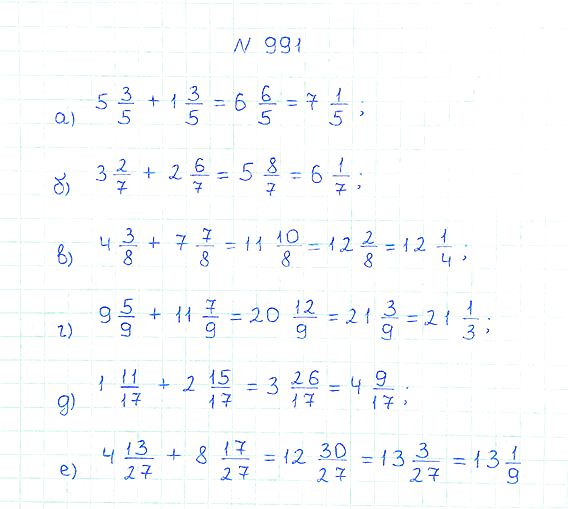 N 991
а) 5 3/5 + 1 3/5 = 6 6/5 = 7 1/5 ;
б) 3 2/7 + 2 6/7 = 5 8/7 = 6 1/7 ;
в) 4 3/8 + 7 7/8 = 11 10/8 = 12 2/8 = 12 1/4 ;
г) 9 5/9 + 11 7/9 = 20 12/9 = 21 3/9 = 21 1/3 ;
д) 1 11/17 + 2 15/17 = 3 26/17 = 4 9/17 ;
е) 4 13/27 + 8 17/27 = 12 30/27 = 13 3/27 = 13 1/9